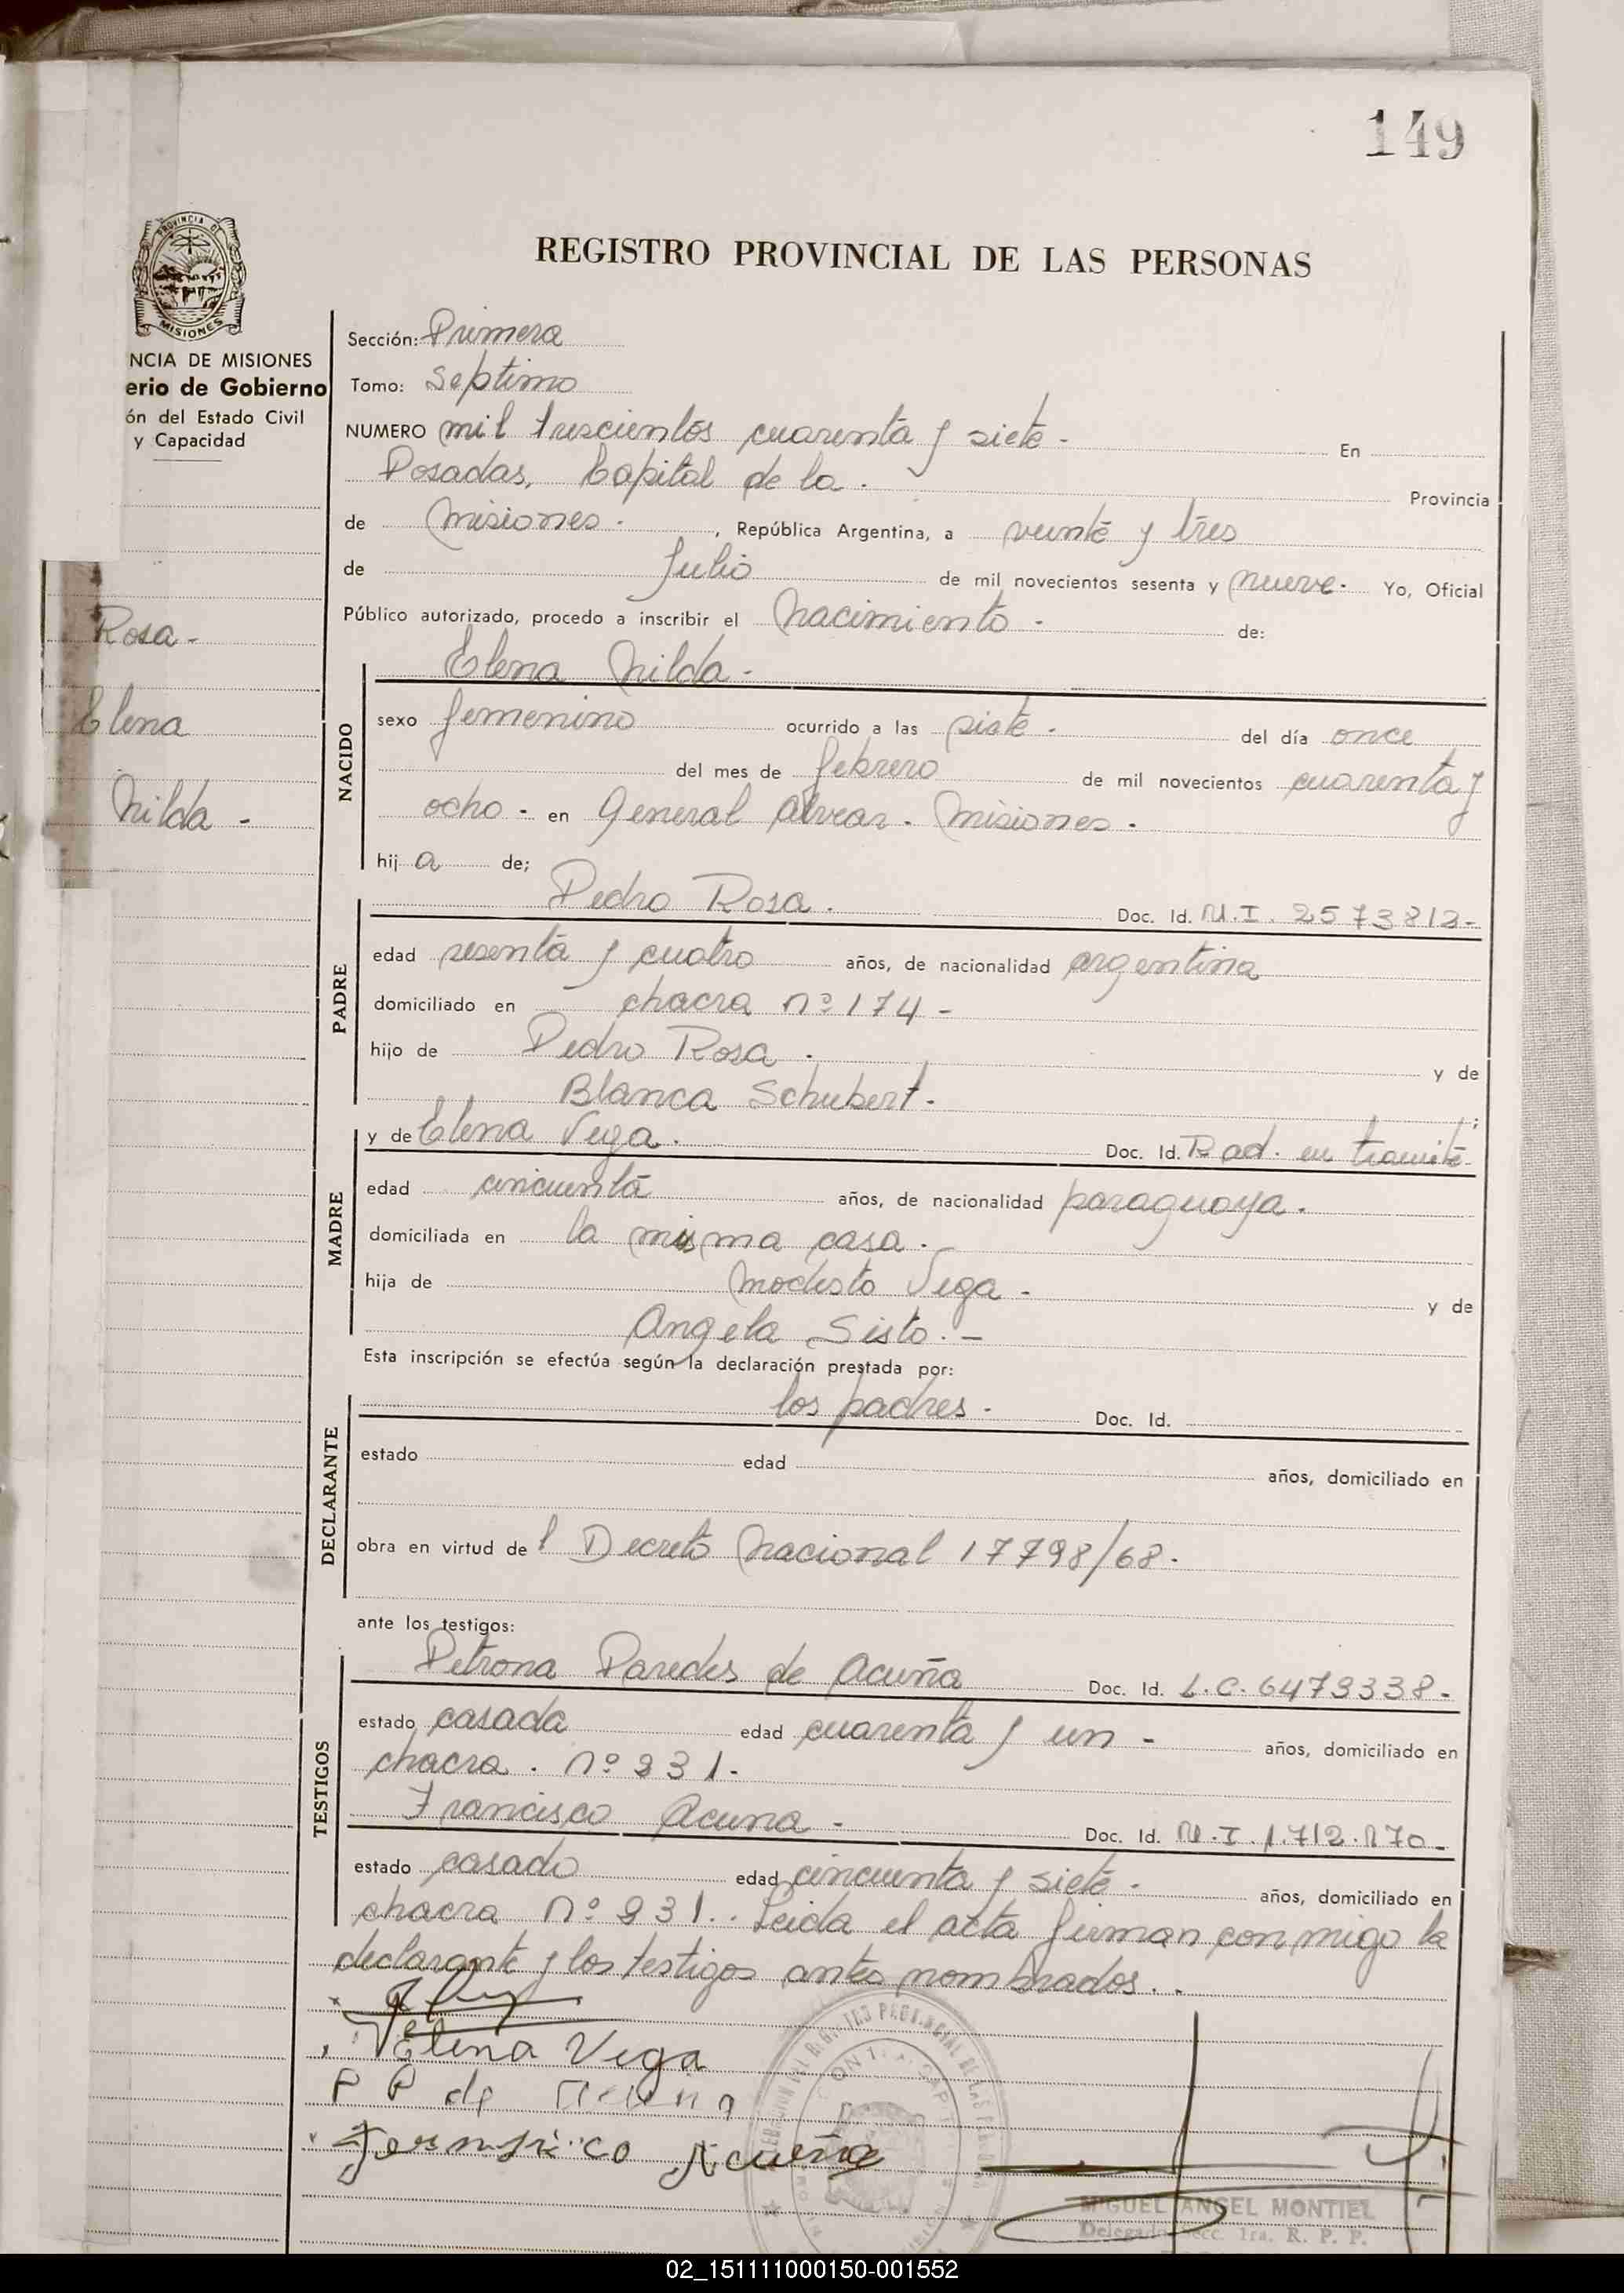 149
PROVINCIA DE
MISIONES
NCIA DE MISIONES
erio de Gobierno
ón del Estado Civil
y Capacidad
Rosa -
Elena
Nilda -
REGISTRO PROVINCIAL DE LAS PERSONAS
Sección: Primera
Tomo: Septimo
NUMERO mil trescientos cuarenta y siete - En
Posadas, Capital de la . Provincia
de Misiones . , República Argentina, a veinte y tres
de Julio de mil novecientos sesenta y nueve - Yo, Oficial
Público autorizado, procedo a inscribir el Nacimiento - de:
Elena Nilda -
NACIDO
sexo femenino ocurrido a las siete . del día once
del mes de febrero de mil novecientos cuarenta y
ocho - en General Alvear . Misiones .
hij a de;
Pedro Rosa . Doc. Id. M.I. 2573813-
PADRE
edad sesenta y cuatro años, de nacionalidad argentina
domiciliado en chacra nº 174 -
hijo de Pedro Rosa . y de
Blanca Schubert . ;
y de Elena Vega . Doc. Id. Rad. en tramite
MADRE
edad cincuenta años, de nacionalidad paraguaya .
domiciliada en la misma casa .
hija de Modesto Vega - y de
Angela Sisto . -
Esta inscripción se efectúa según la declaración prestada por:
los padres - Doc. Id.
DECLARANTE
estado edad años, domiciliado en
obra en virtud de l Decreto Nacional 17798/68 -
ante los testigos:
Petrona Paredes de Acuña Doc. Id. L.C. 6473338 -
TESTIGOS
estado casada edad cuarenta y un - años, domiciliado en
chacra . nº 231 -
Francisco Acuna - Doc. Id. M.I. 1.712.170 -
estado casado edad cincuenta y siete - años, domiciliado en
chacra nº 231 . . Leida el acta firman conmigo la
declarante y los testigos antes nombrados . .
Elena Vega
P P de Acuña
Fransico Acuña
MIGUEL ANGEL MONTIEL
Delegado Secc. 1ra. R. P. P.
02_151111000150-001552